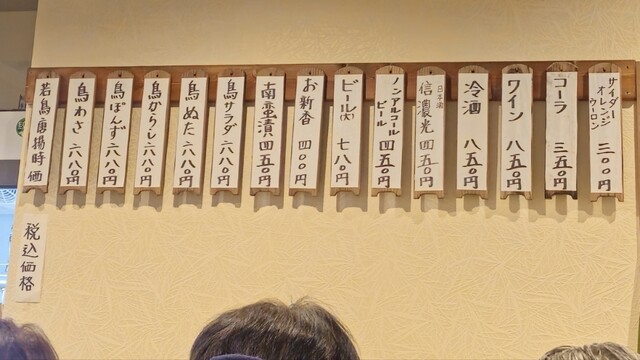 サイダー
オレンジ
ウーロン
三〇〇円
コーラ 三五〇円
ワイン 八五〇円
冷酒 八五〇円
日本酒
信濃光 四五〇円
ノンアルコール
ビール 四五〇円
ビール(大) 七八〇円
お新香 四〇〇円
南蛮漬 四五〇円
鳥サラダ 六八〇円
鳥ぬた 六八〇円
鳥からし 六八〇円
鳥ぽんず 六八〇円
鳥わさ 六八〇円
若鳥唐揚時価
税込価格